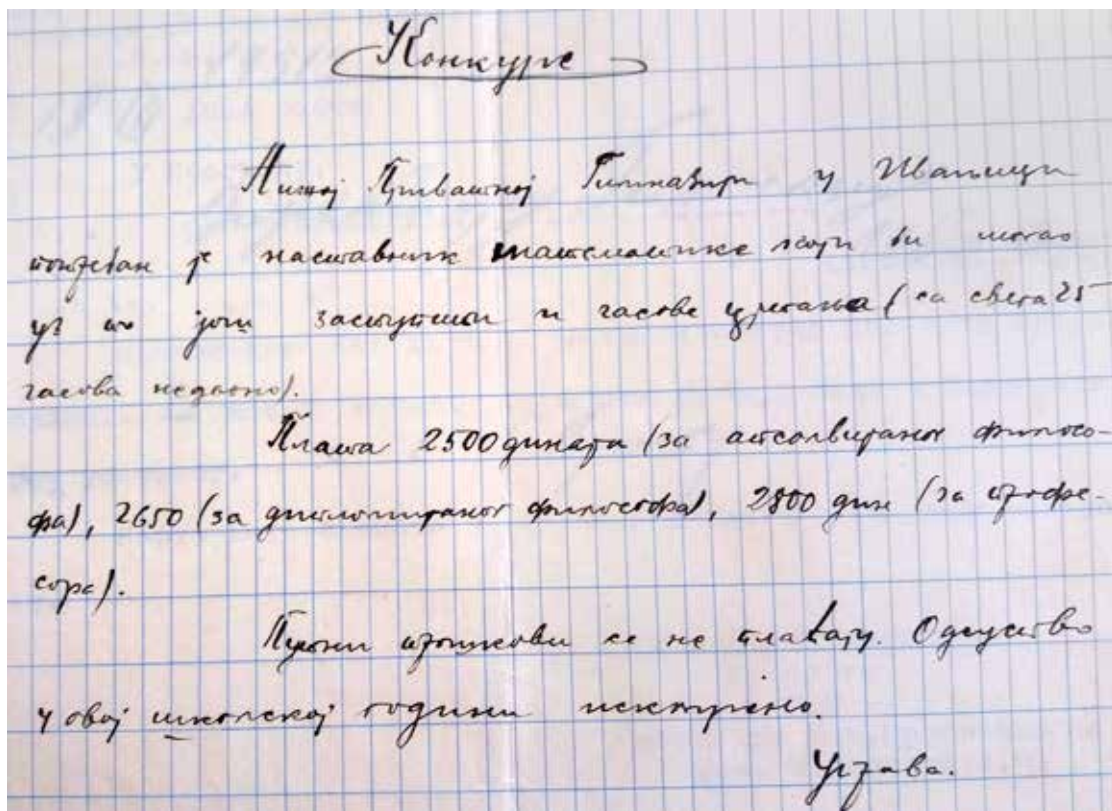 Конкурс
Нижој Приватној Гимназији у Ивањици
потребан је наставник математике који би могао
уз то још заступити и часове цртања (са свега 25
часова недељно).
Плата 2500 динара (за апсолвираног филосо-
фа), 2650 (за дипломираног философа), 2800 дин (за профе-
сора).
Путни трошкови се не плаћају. Одсуство
у овој школској години искључено.
Управа.